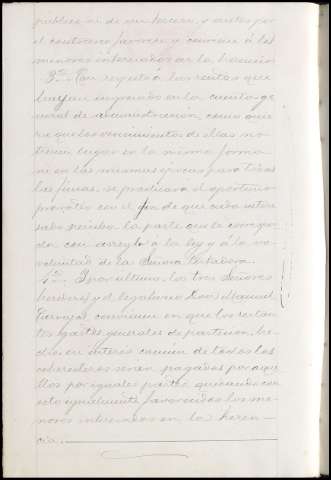 judicial de un tercero, y antes por
el contrario favorece y conviene á los
menores interesados en la herencia
3º. Con respecto á las rentas que
hayan ingresado en la cuenta ge
neral de administracion, como quie
ra que los vencimientos de ellas no
tienen lugar en la misma forma
ni en las mismas épocas para todas
las fincas, se practicará el oportuno
prorrateo con el fin de que cada intere
sado reciba la parte que le correspon
da con arreglo á la ley y á la vo
voluntad de la Señora Testadora.
4º. Y por último, los tres Señores
herederos y el legatario Don Manuel
convienen en que los restan
tes gastos generales de particion, he
chos en interés comun de todos los
coherederos sean pagados por aque
llos por iguales partes quedando con
esto igualmente favorecidos los me
nores interesados en la heren
cia.